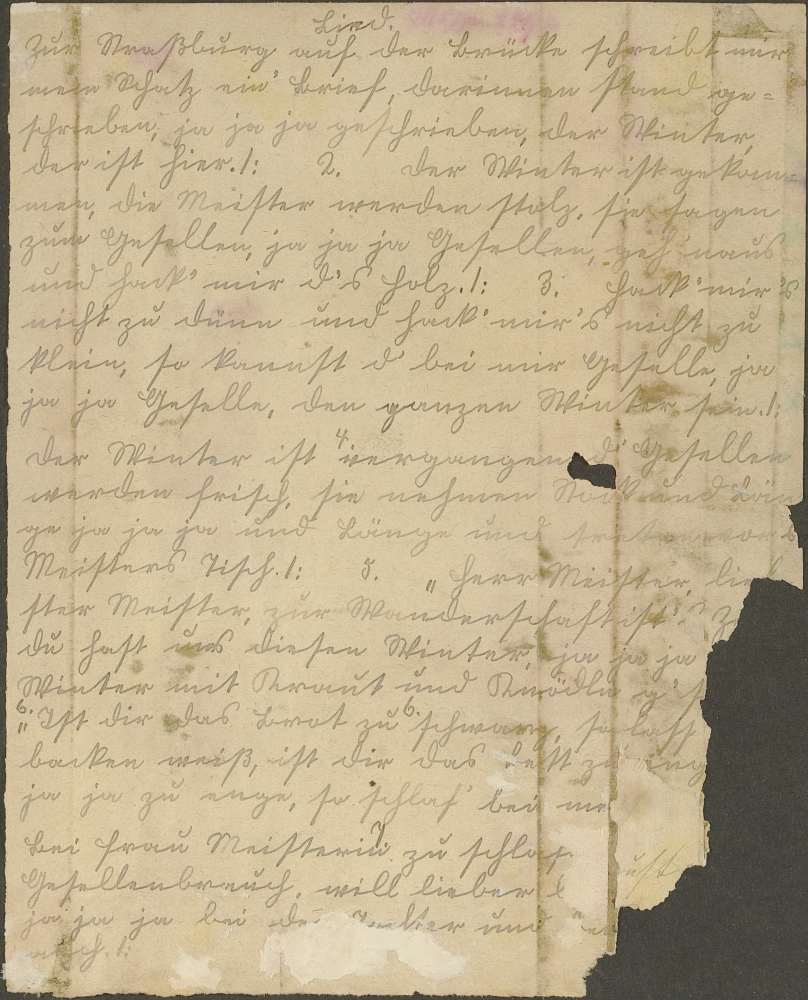 Lied.
Zur Straßburg auf der Brücke schreibt mir
mein Schatz ein' Brief, darinnen stand ge=
schrieben, ja ja ja geschrieben, der Winter,
der ist hier.!: 2. Der Winter ist gekom-
men, die Meister werden stolz, sie sagen
zum Gesellen, ja ja ja Gesellen, geh' naus
und hack' mir d's Holz.!: 3. Hack' mir's
nicht zu dünn und hack' mir's nicht zu
klein, so kannst d' bei mir Geselle, ja
ja ja Geselle, den ganzen Winter sein.!:
4.
Der Winter ist vergangen d' Gesellen
werden frisch, sie nehmen Stock und
ge ja ja ja und Länge und treten vor's
Meisters Tisch.!: 5. „Herr Meister, lieb
ster Meister, zur Wanderschaft ist's Z
du hast uns diesen Winter, ja ja ja
Winter mit Kraut und Knödln g's
6. 6.
„Ist dir das Brot zu schwarz, so lass
backen weiß, ist dir das Bett zu eng
ja ja zu enge, so schlaf' bei me
7.
Bei Frau Meisterin zu schlaf
Gesellenbrauch, will lieber
ja ja ja bei der Tochter und
auch.!: